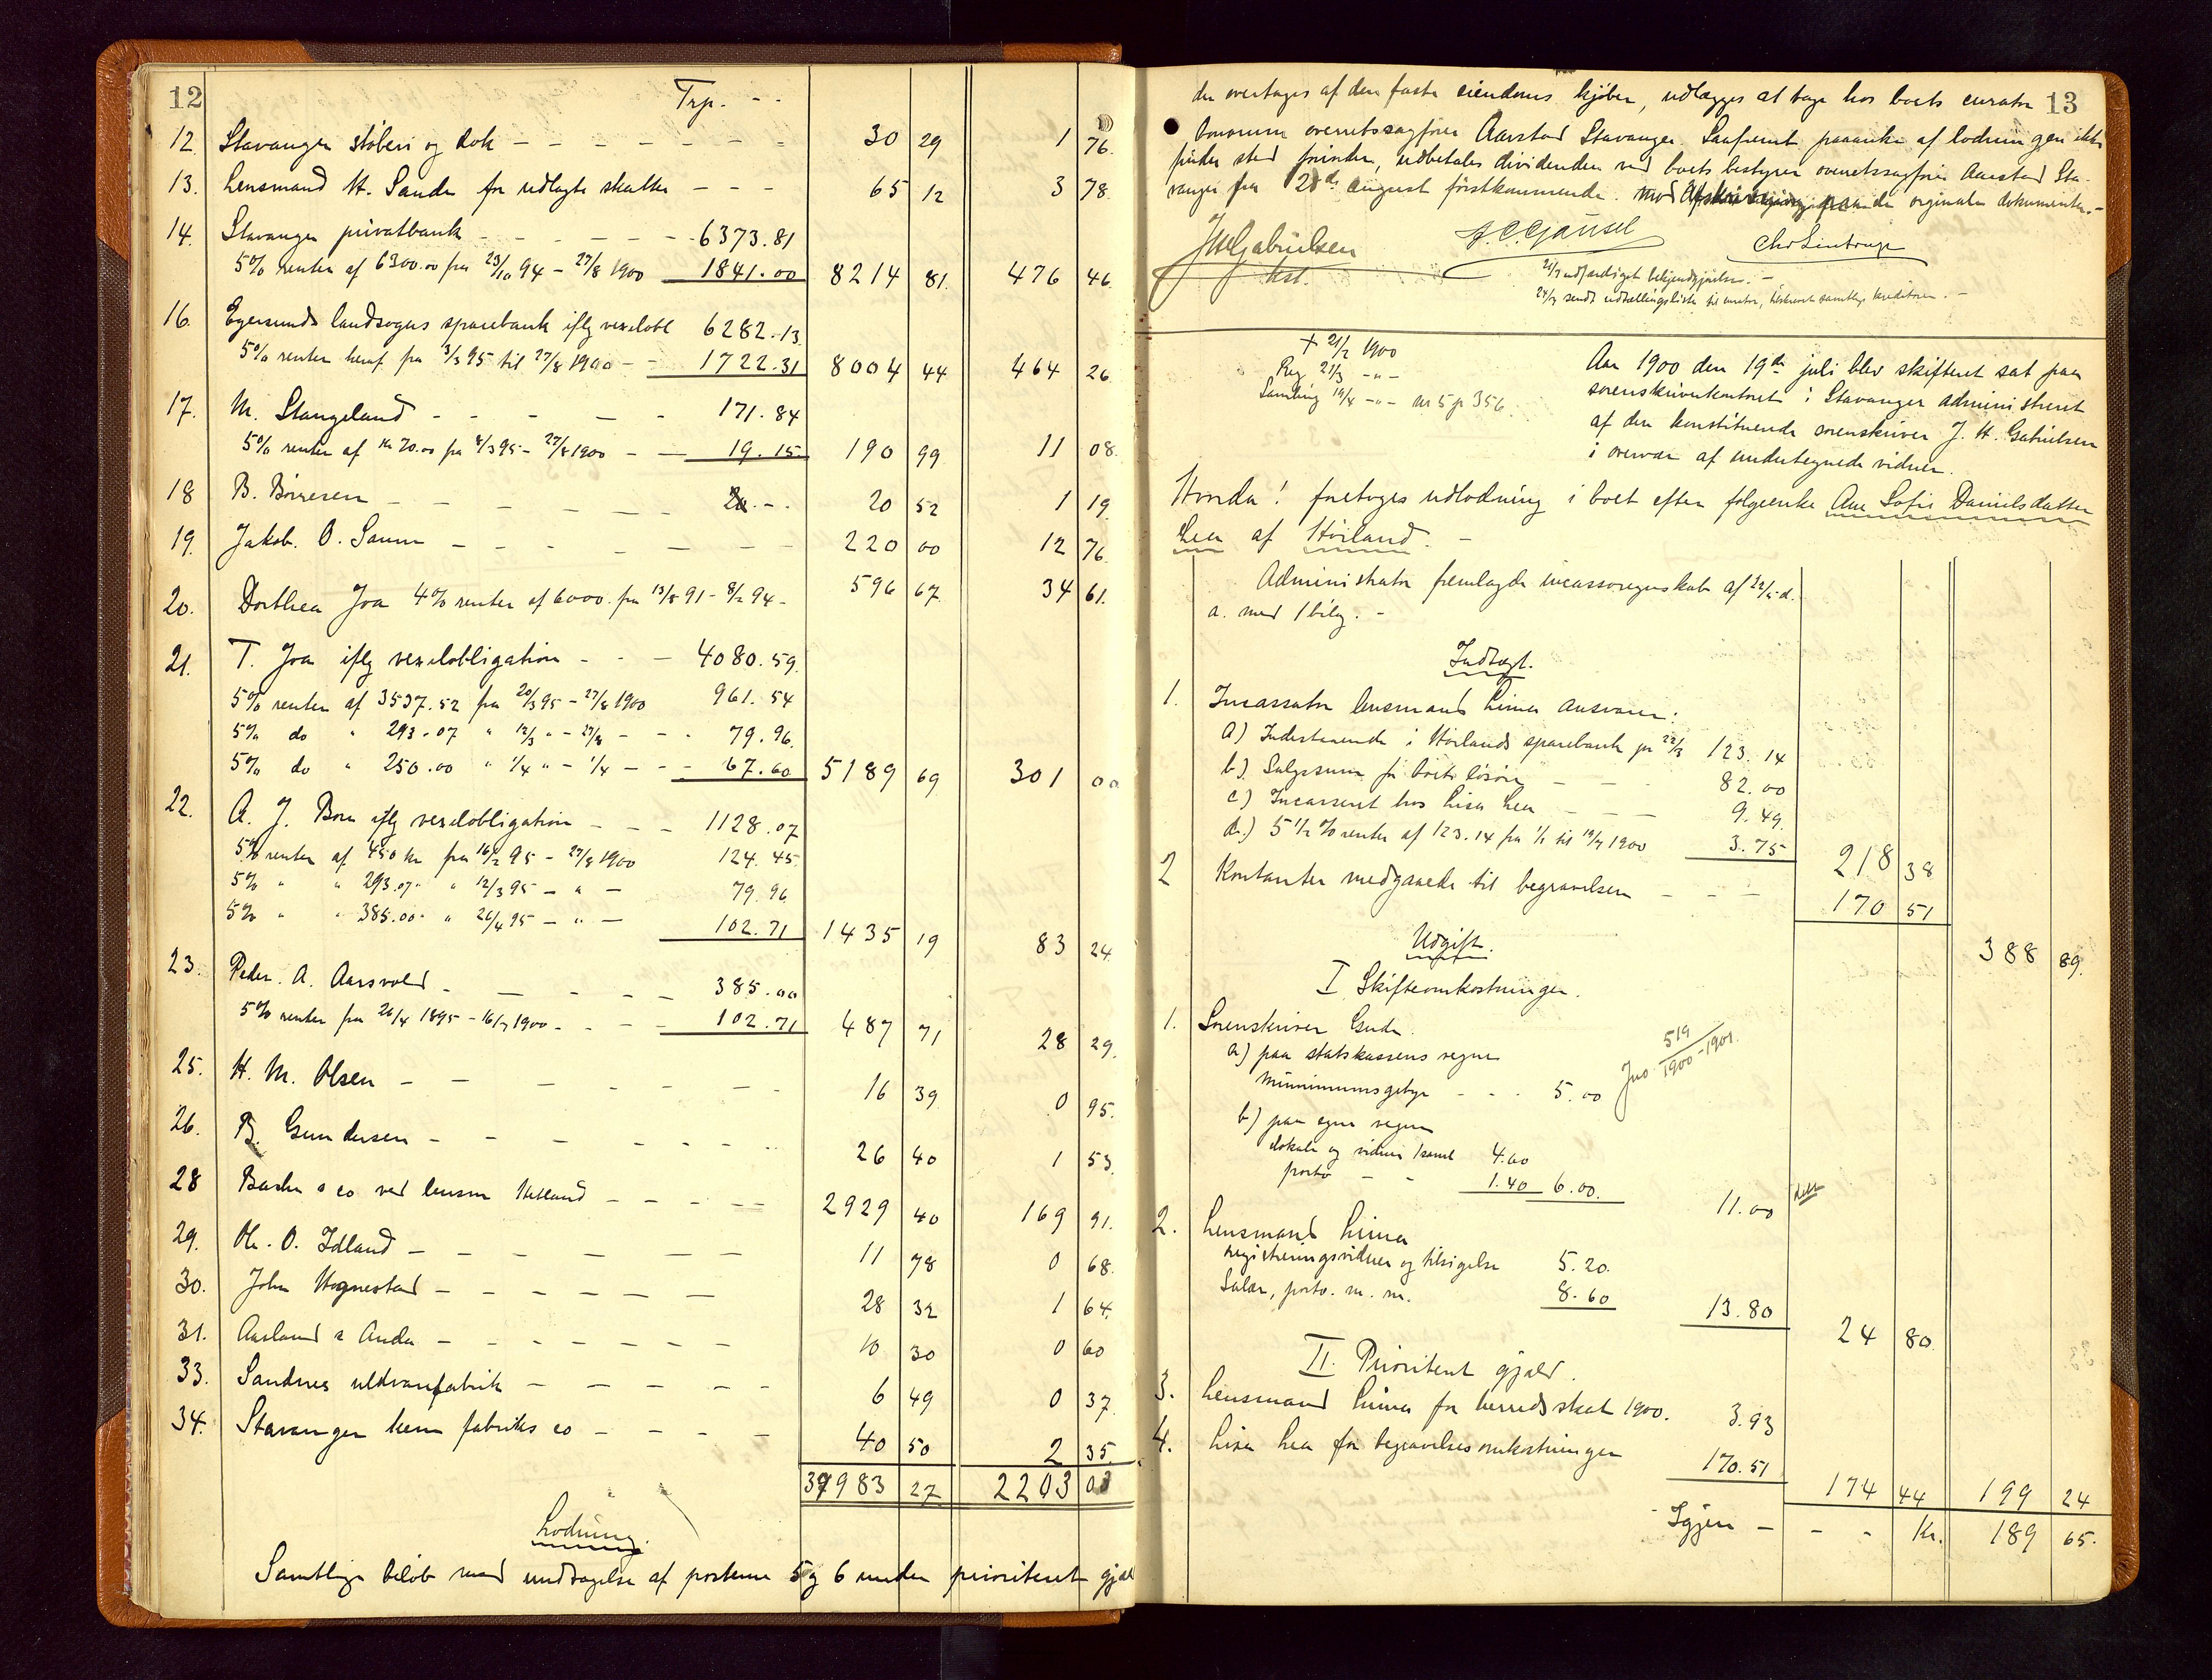 12
Trp. - -
12. Stavanger støberi og dok - - - - - - - 30 29 1 76.
13. Lensmand H. Sande for udlagte skatter - - - 65 12 3 78.
14. Stavanger privatbank - - - - - - 6373.81
5% renter af 6300.00 fra 23/10 94 - 27/8 1900 1841.00 8214 81. 476 46.
16. Egersunds landsogns sparebank iflg vexelobl 6282.13.
5% renter heraf fra 3/3 95 til 27/8 1900 - - 1722.31 8004 44 464 26
17. M. Stangeland - - - - - 171.84
5% renter af kr 70.00 fra 8/3 95 - 27/8 1900 - - 19.15 190 99 11 08.
18 B. Börresen - - - - - - 20 52 1 19.
19. Jakob O. Sunn - - - - - - - 220 00 12 76
20. Dorthea Joa 4% renter af 6000. fra 13/8 91 - 8/2 94 - 596 67 34 61.
21. T. Joa iflg vexelobligation - - - 4080.59.
5% renter af 3537.52 fra 20/3 95 - 27/8 1900 961.54
5% do " 293.07 " 12/3 " - 27/8 - - - 79.96.
5% do " 250.00 " 1/4 " - 1/4 - - - 67.60 5189 69 301 00
22. A. J. Bore iflg vexelobligation - - - 1128.07
5% renter af 450 kr fra 16/2 95 - 27/8 1900 124.45
5% " " 293.07 " 12/3 95 - " - 79.96
5% " " 385.00 " 26/4 95 - " - 102.71 1435 19 83 24
23. Peder. A. Aarsvold - - - - - 385.00
5% renter fra 26/4 1895 - 16/7 1900 - - - - 102.71 487 71 28 29.
25. H. M. Olsen - - - - - - - 16 39 0 95.
26. B. Gundersen - - - - - - - 26 40 1 53.
28 Backer & co ved lensm Hetland - - - - - 2929 40 169 91.
29. Ole. O. Idland - - - - - - - 11 78 0 68.
30. John Hognestad - - - - - - 28 32 1 64.
31. Aasland & Anda - - - - - - - 10 30 0 60
33. Sandnes uldvarefabrik - - - - - 6 49 0 37.
34. Stavanger kem fabriks co - - - - 40 50 2 35.
37983 27 2203 03
Lodning.
Samtlige beløb med undtagelse af posterne 5 og 6 under prioriteret gjæld
13
der overtages af den faste eiendoms kjøber, udlægges at tage hos boets curator
bonorum overretssagfører Aarstad Stavanger. Saafremt paaanke af lodningen ikke
finder sted forinden, udbetales dividenden ved boets bestyrer overretssagfører Aarstad Sta-
vanger fra 28de august førstkommende. mod Afskrivning paa de originale dokumenter.-
JHGabrielsen
kst.
J. C. Gjausel
Chr Lindtrup
21/7 udfærdiget bekjendtgjørelse. -
24/7 sendt udtællingsliste til curator, tilskrevet samtlige kreditorer. -
+ 21/2 1900
Reg 21/3 -"-
Samling 19/4 -"- nr 5 p 356.
Aar 1900 den 19de juli blev skifteret sat paa
sorenskriverkontoret i Stavanger administreret
af den konstituerede sorenskriver J. H. Gabrielsen
i overvær af undertegnede vidner.
Hvorda! foretoges udlodning i boet efter følgeenke Ane Sofie Danielsdatter
Lea af Høiland. -
Administrator fremlagde incassoregnskab af 22/5 d.
a. med 1 bilg. -
Indtægt.
1. Incassator lensmand Lima ansvarer:
a) Indestaaende i Høilands sparebank pr 22/3 123.14
b) Salgssum for boets løsøre - - - 82.00
c) Incasseret hos Lisa Lea - - - 9.49.
d.) 5 1/2 % renter af 123.14 fra 1/1 til 19/7 1900 3.75 218 38
2 Kontanter medgaaede til begravelsen - - - 170 51
388 89.
Udgift.
I Skifteomkostninger.
1. Sorenskriver Gude.
a) paa statskassens vegne
Minimumsgebyr - - - 5.00
Jno 519/1900-1901.
b) paa egne vegne
lokale og vidner 1 saml 4.60
porto - - 1.40 6.00. 11.00
2. Lensmand Lima
registreringsvidner og tilsigelse 5.20.
Salær, porto. m. m. 8.60 13.80 24 80
II. Prioriteret gjæld.
3. Lensmand Lima for herredsskat 1900. 3.93
4. Lisa Lea for begravelsesomkostninger 170.51 174 44 199 24
Igjen - - - Kr. 189 65.